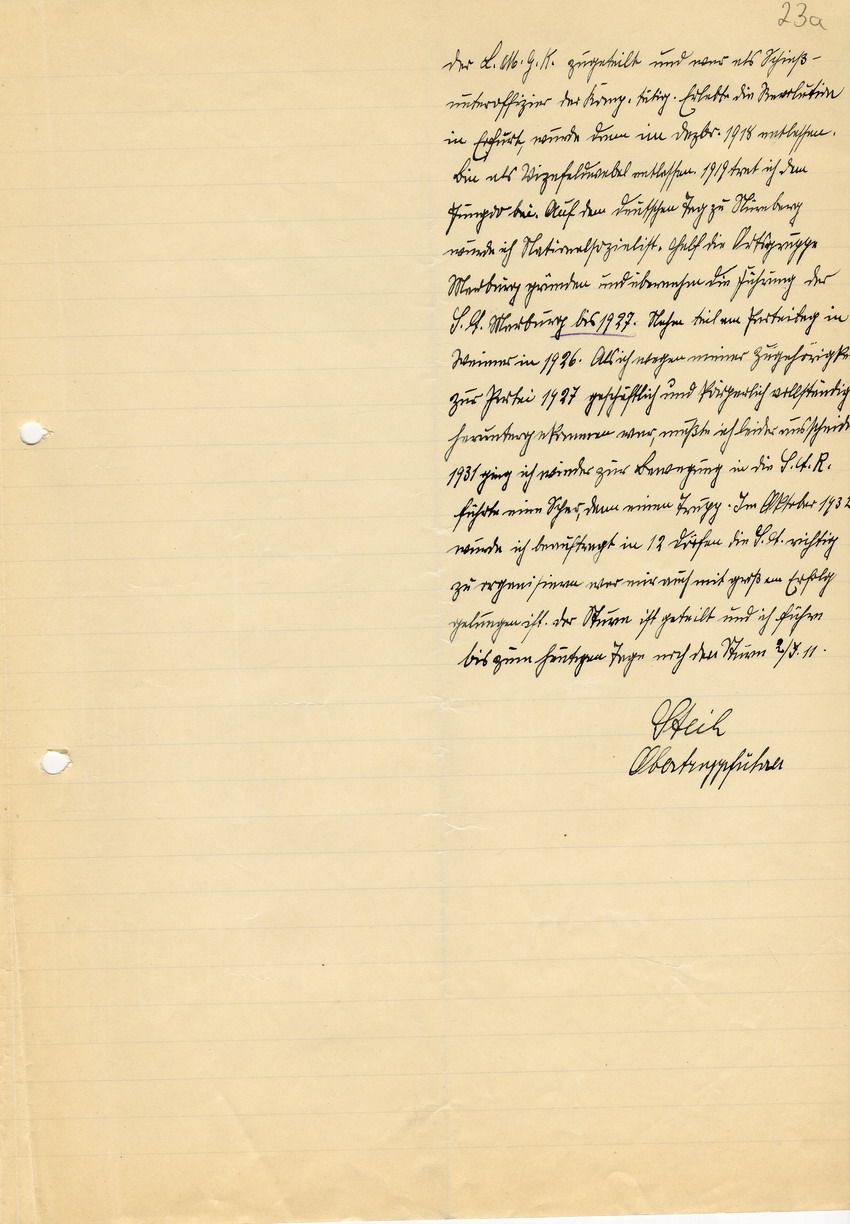 23a
der L. M. G. K. zugeteilt und war als Schieß-
unteroffizier der Komp. tätig. Erlebte die Revolution
in Erfurt, wurde dann im Dezbr. 1918 entlassen.
Bin als Vizefeldwebel entlassen. 1919 trat ich dem
Jungdo bei. Auf dem Deutschen Tag zu Nürnberg
wurde ich Nationalsozialist. Half die Ortsgruppe
Marburg gründen und übernahm die Führung der
S. A. Marburg bis 1927. Nahm teil am Parteitag in
Weimar in 1926. Als ich wegen meiner Zugehörigke
zur Partei 1927 geschäftlich und körperlich vollständig
heruntergekommen war, mußte ich leider ausscheide
1931 ging ich wieder zur Bewegung in die S. A. R.
führte eine Schar, dann einen Trupp. Im Oktober 1932
wurde ich beauftragt in 12 Dörfen die S. A. richtig
zu organisieren was mir auch mit großem Erfolg
gelungen ist. Der Sturm ist geteilt und ich führe
bis zum heutigen Tage noch den Sturm 2/J. 11.
Obertruppführer